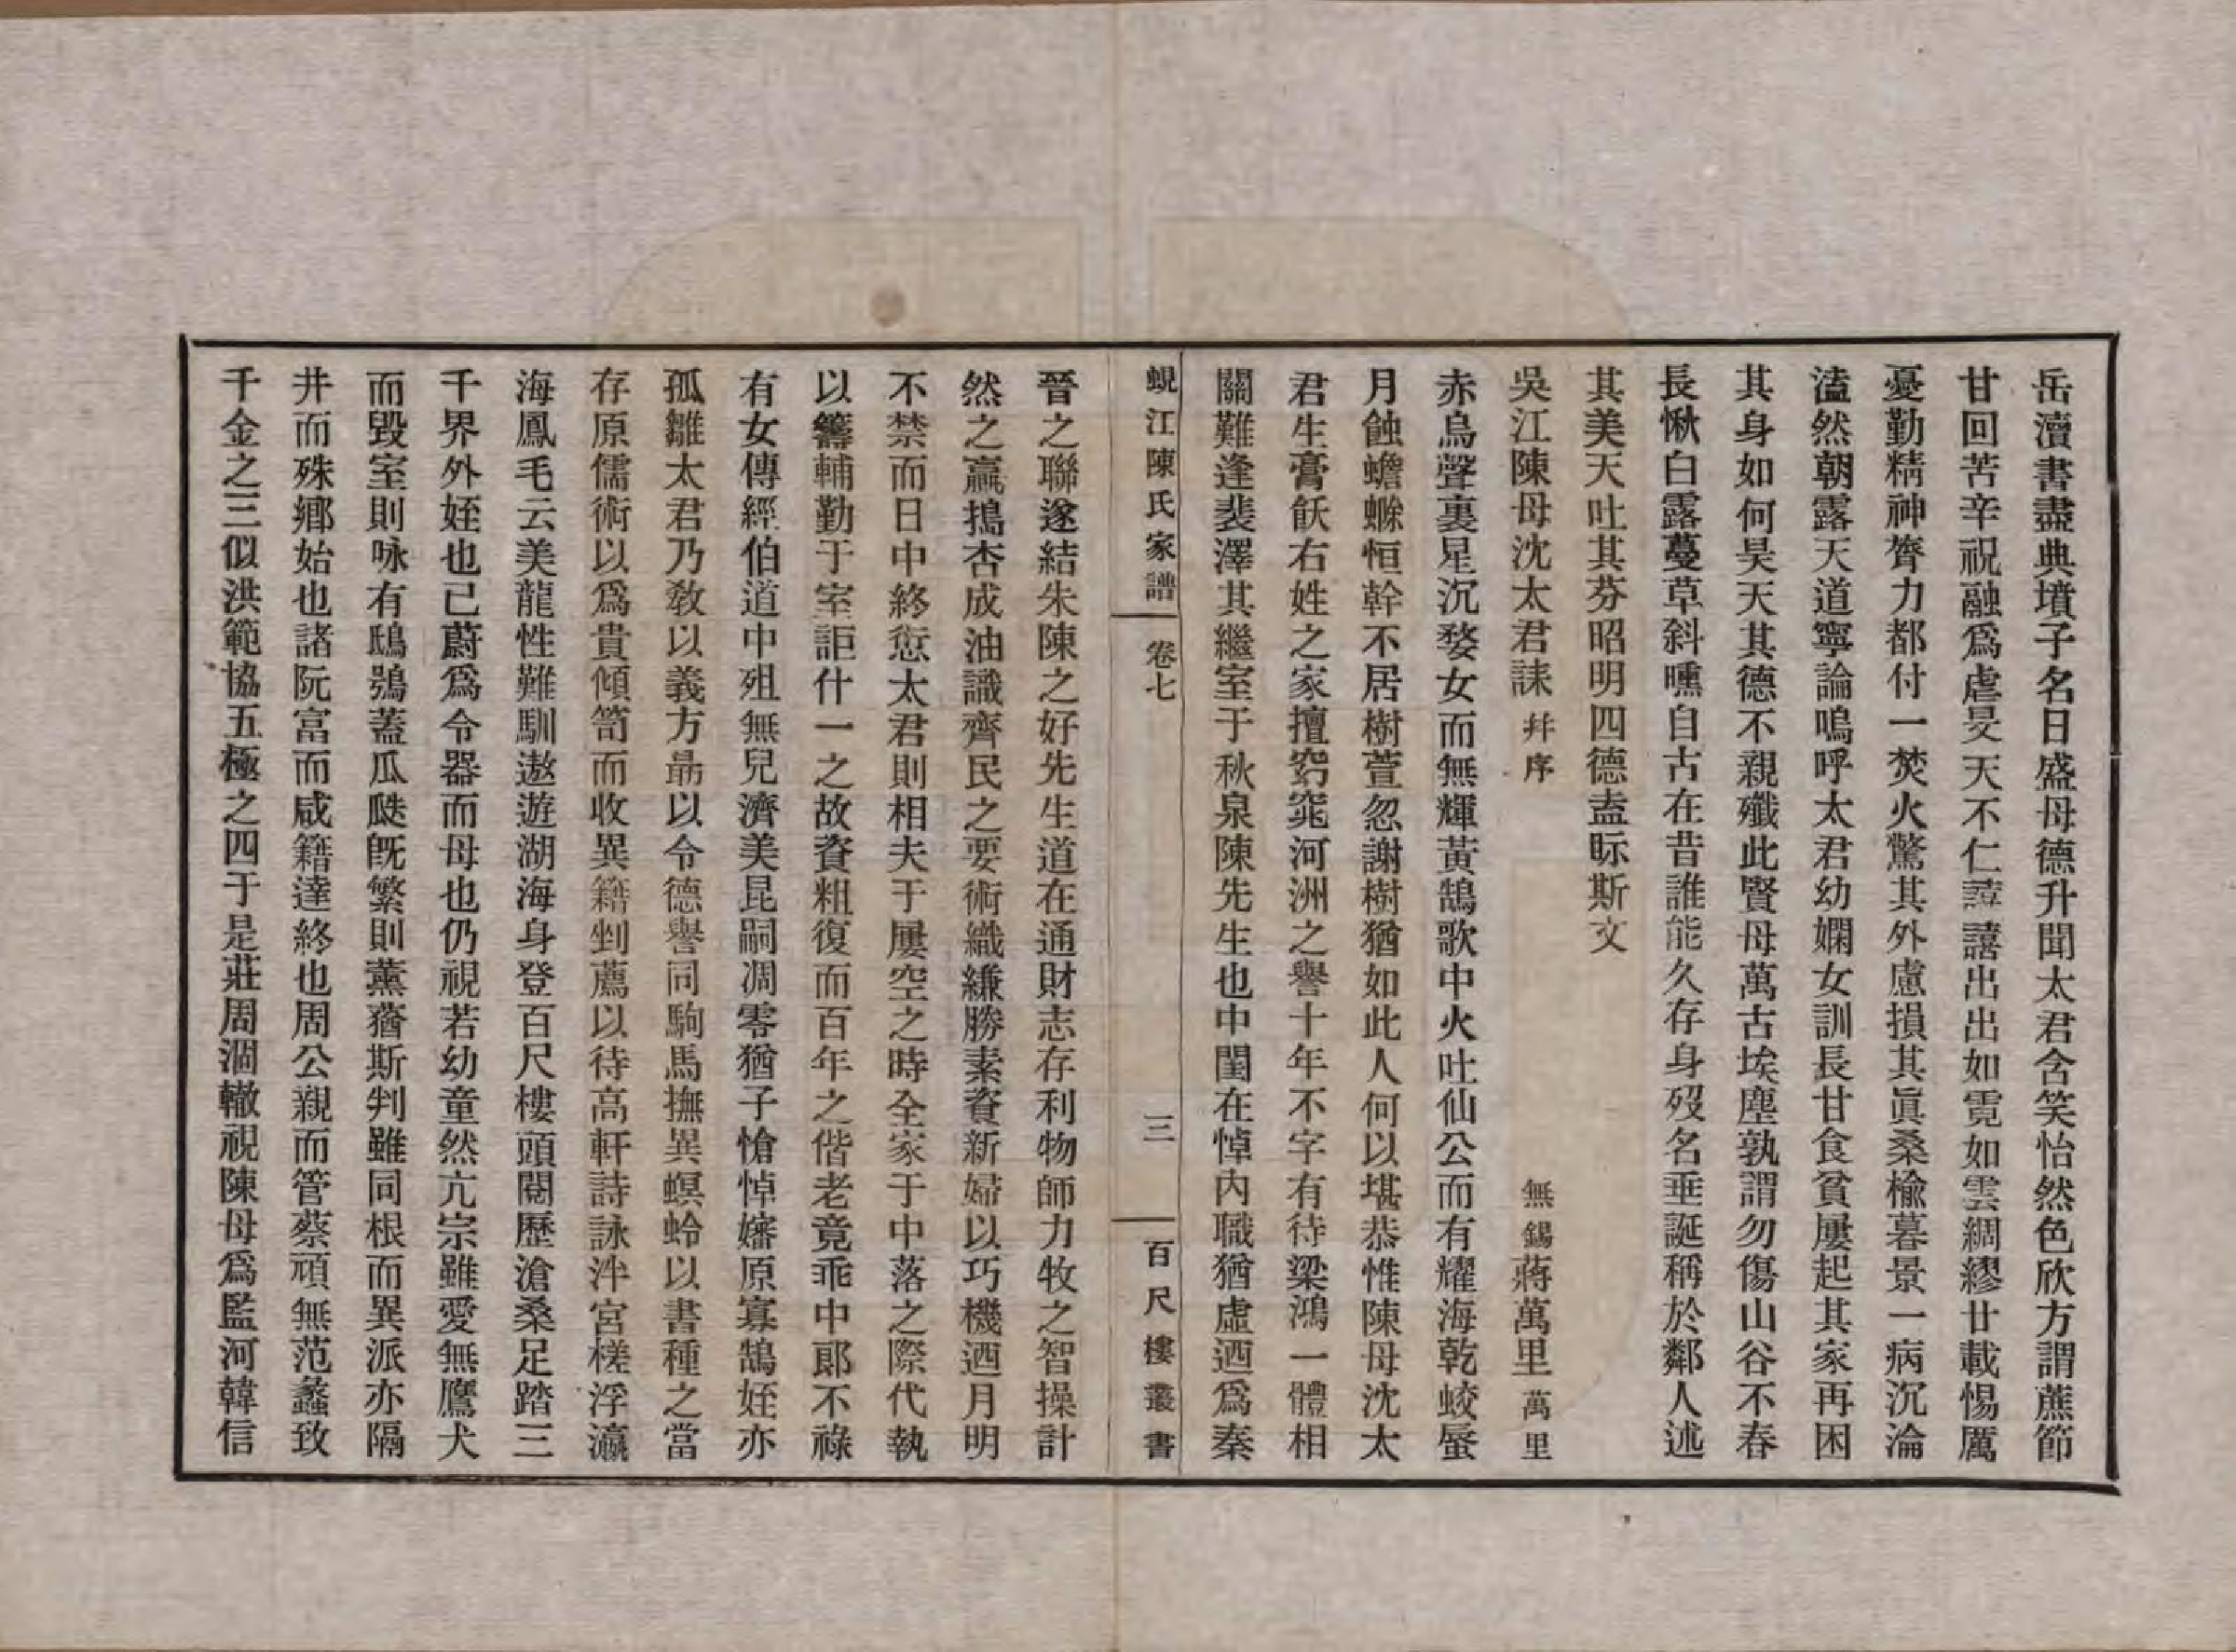 岳瀆書盡典墳子名日盛母德升聞太君含笑怡然色欣方謂蔗節
甘回苦辛祝融爲虐旻天不仁譆譆出出如霓如雲綢繆廿載惕厲
憂勤精神膂力都付一焚火驚其外慮損其眞桑楡暮景一病沉淪
溘然朝露天道寧論嗚呼太君幼嫻女訓長甘食貧屢起其家再困
其身如何昊天其德不親殲此賢母萬古埃塵孰謂勿傷山谷不春
長楸白露蔓草斜曛自古在昔誰能久存身歿名垂誕稱於鄰人述
其美天吐其芬昭明四德盍眎斯文
吳江陳母沈太君誄 幷序 無錫蔣萬里萬里
赤烏聲裏星沉婺女而無輝黃鵠歌中火吐仙公而有耀海乾蛟蜃
月蝕蟾蜍恒幹不居樹萱忽謝樹猶如此人何以堪恭惟陳母沈太
君生膏飫右姓之家擅窈窕河洲之譽十年不字有待梁鴻一體相
關難逢裴澤其繼室于秋泉陳先生也中閨在悼內職猶虛迺爲秦
蜆江陳氏家譜 卷七 三 百尺樓叢書
晉之聯遂結朱陳之好先生道在通財志存利物師力牧之智操計
然之贏搗杏成油識齊民之要術織縑勝素資新婦以巧機迺月明
不禁而日中終愆太君則相夫于屢空之時全家于中落之際代執
以籌輔勤于室詎什一之故資粗復而百年之偕老竟乖中郞不祿
有女傳經伯道中殂無兒濟美昆嗣凋零猶子愴悼嬸原寡鵠姪亦
孤雛太君乃敎以義方勗以令德譽同駒馬撫異螟蛉以書種之當
存原儒術以爲貴傾笥而收異籍剉薦以待高軒詩詠泮宮槎浮瀛
海鳳毛云美龍性難馴遨遊湖海身登百尺樓頭閱歷滄桑足踏三
千界外姪也已蔚爲令器而母也仍視若幼童然亢宗雖愛無鷹犬
而毀室則咏有鴟鴞蓋瓜瓞旣繁則薰蕕斯判雖同根而異派亦隔
井而殊鄕始也諸阮富而咸籍達終也周公親而管蔡頑無范蠡致
千金之三似洪範協五極之四于是莊周涸轍視陳母爲監河韓信